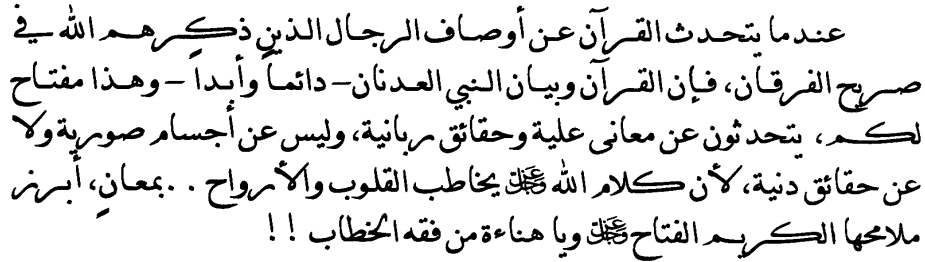 عندما يتحدث القرآن عن أوصاف الرجال الذين ذكرهم الله في
صريح الفرقان، فإن القرآن وبيان النبي العدنان – دائماً وأبداً – وهذا مفتاح
لكم، يتحدثون عن معانى علية وحقائق ربانية، وليس عن أجسام صورية ولا
عن حقائق دنية، لأن كلام الله ﷿ يخاطب القلوب والأرواح . . بمعانٍ، أبرز
ملامحها الكريم الفتاح ﷿ ويا هناءة من فقه الخطاب ! !